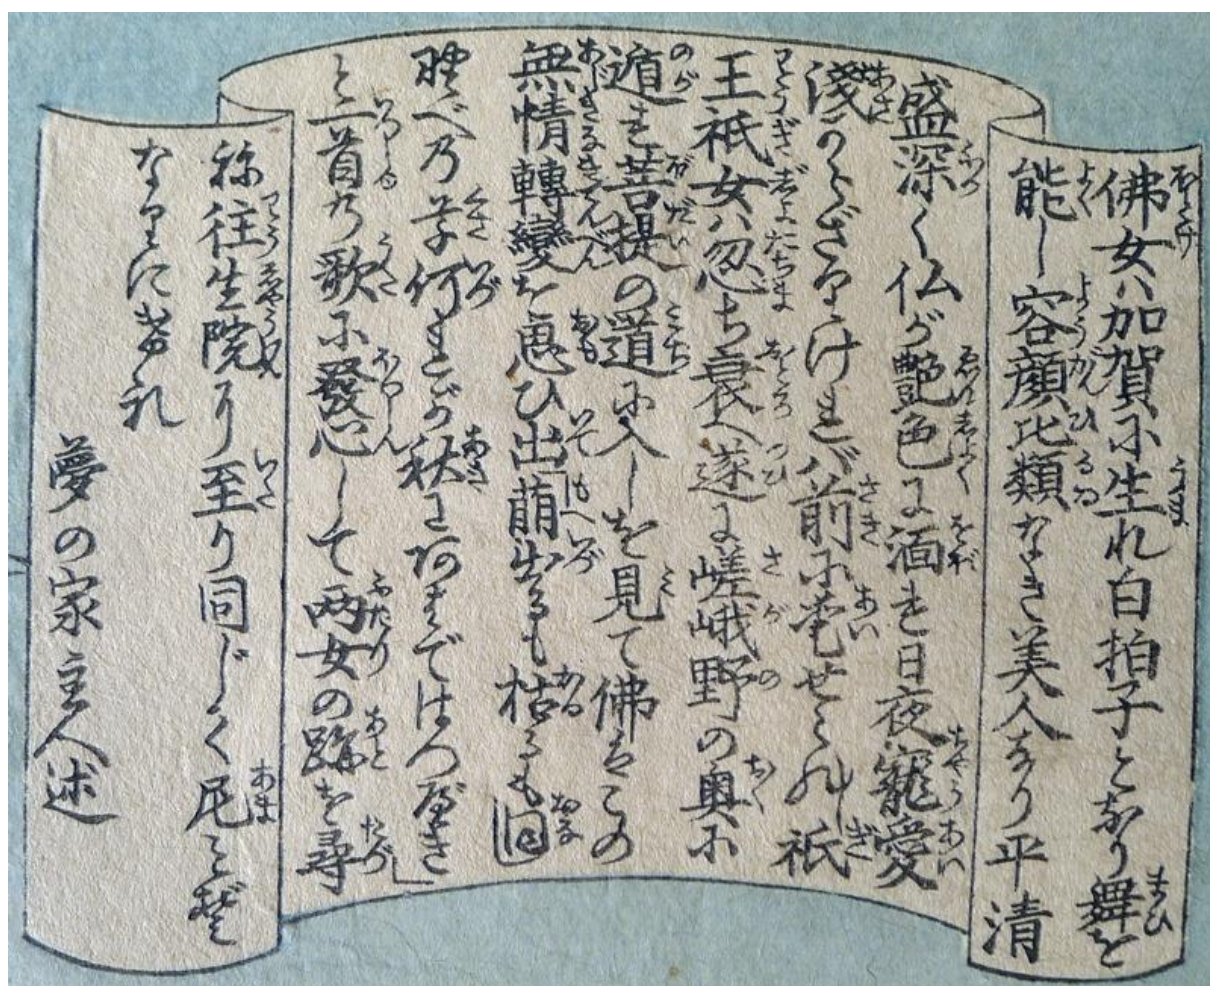 佛女ハ加賀に生れ白拍子となり舞を
能し容顔比類なき美人なり平清
盛深く仏が艶色に洒を日夜寵愛
浅からざりけれバ前に愛せられし祇
王祇女ハ忽ち衰へ遂に嵯峨野の奥に
遁き菩提の道に入しを見て佛はこの
無情轉變を思ひ出萌出るも枯るも同じ
野べの草何れか秋にあはではつべき」
と一首の歌に發心して両女の跡を尋
ね往生院に至り同じく尼とぞ
なりにけれ
夢の家主人述